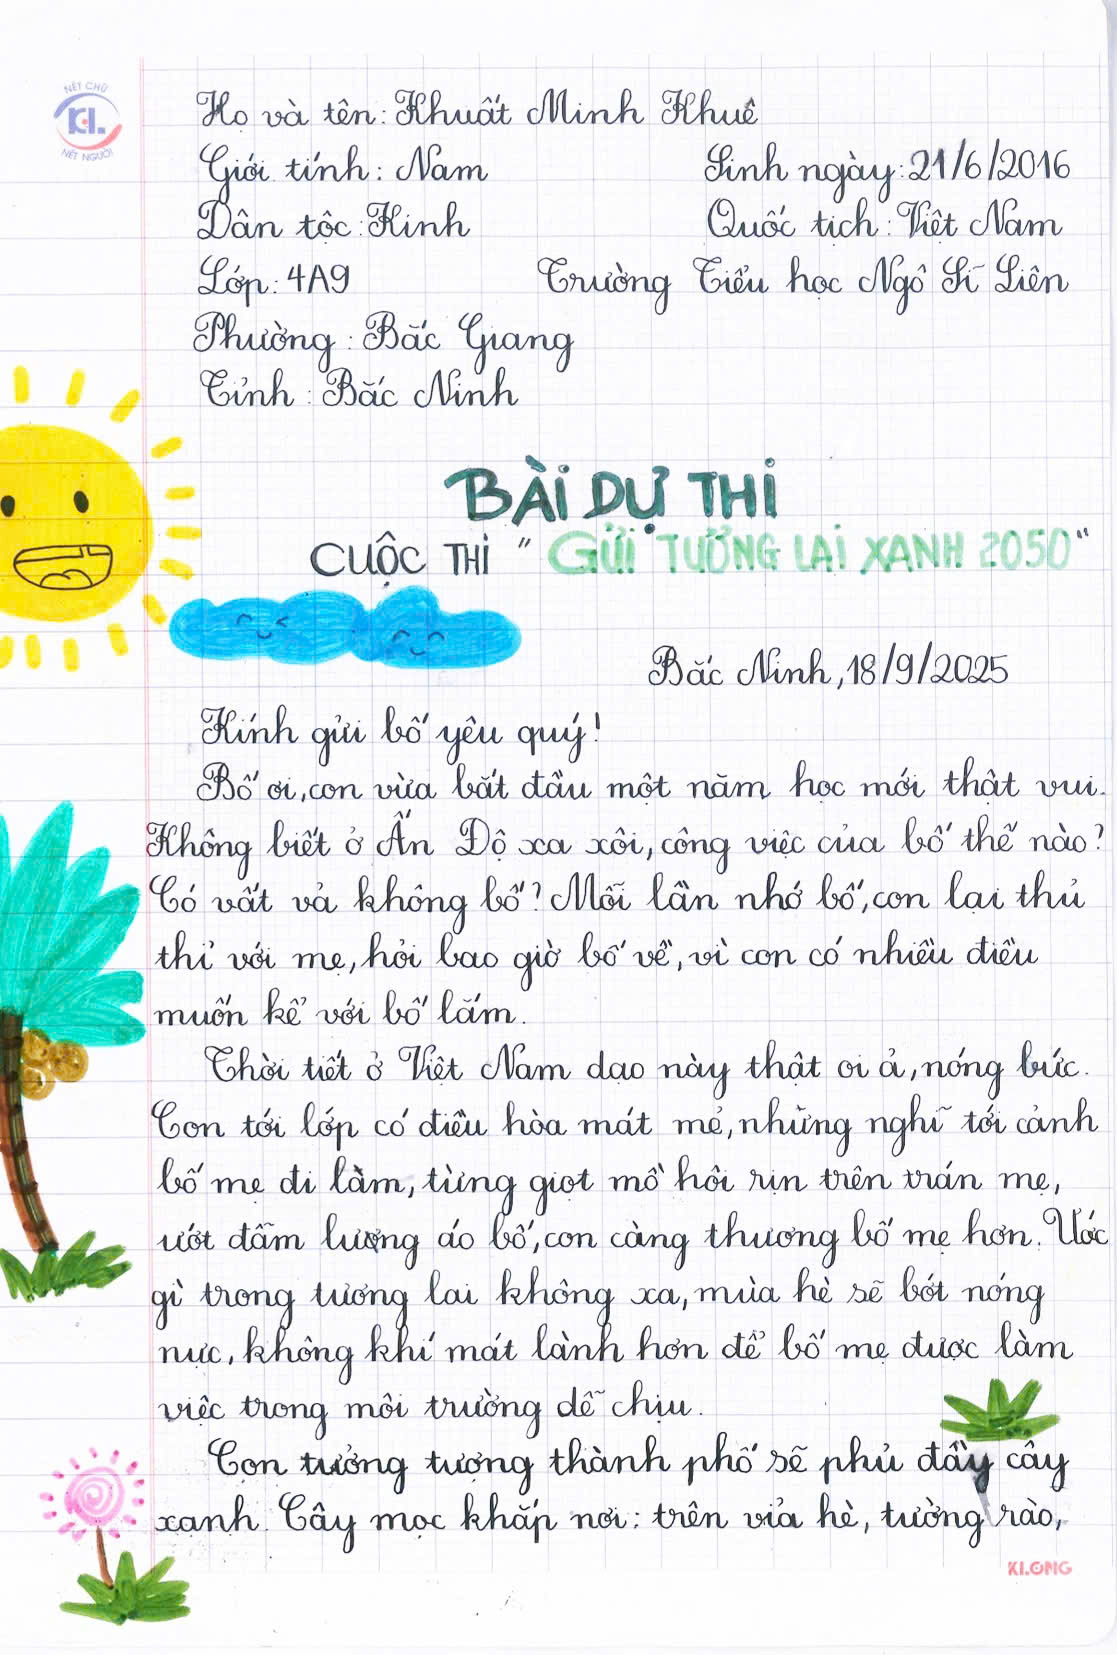 NÉT CHỮ
KL.
NẾT NGƯỜI
Họ và tên: Khuất Minh Khuê
Giới tính: Nam Sinh ngày: 21/6/2016
Dân tộc: Kinh Quốc tịch: Việt Nam
Lớp: 4A9 Trường Tiểu học Ngô Sĩ Liên
Phường: Bắc Giang
Tỉnh: Bắc Ninh
BÀI DỰ THI
CUỘC THI "GỬI TƯƠNG LAI XANH 2050"
Bắc Ninh, 18/9/2025
Kính gửi bố yêu quý!
Bố ơi, con vừa bắt đầu một năm học mới thật vui.
Không biết ở Ấn Độ xa xôi, công việc của bố thế nào?
Có vất vả không bố? Mỗi lần nhớ bố, con lại thủ
thỉ với mẹ, hỏi bao giờ bố về, vì con có nhiều điều
muốn kể với bố lắm.
Thời tiết ở Việt Nam dạo này thật oi ả, nóng bức.
Con tới lớp có điều hòa mát mẻ, nhưng nghĩ tới cảnh
bố mẹ đi làm, từng giọt mồ hôi rịn trên trán mẹ,
ướt đẫm lưng áo bố, con càng thương bố mẹ hơn. Ước
gì trong tương lai không xa, mùa hè sẽ bớt nóng
nực, không khí mát lành hơn để bố mẹ được làm
việc trong môi trường dễ chịu.
Con tưởng tượng thành phố sẽ phủ đầy cây
xanh. Cây mọc khắp nơi: trên vỉa hè, tường rào,
KLONG